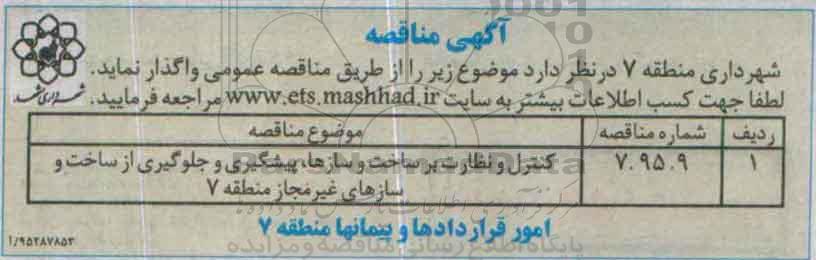 آگهی مناقصه
شهرداری منطقه ۷ در نظر دارد موضوع زیر را از طریق مناقصه عمومی واگذار نماید.
لطفا جهت کسب اطلاعات بیشتر به سایت www.ets.mashhad.ir مراجعه فرمایید.
شهرداری مشهد
ردیف شماره مناقصه موضوع مناقصه
۱ ۷.۹۵.۹ کنترل و نظارت بر ساخت و سازها، پیشگیری و جلوگیری از ساخت و
سازهای غیرمجاز منطقه ۷
امور قراردادها و پیمانها منطقه ۷
۱/۹۵۲۸۷۸۵۳
پایگاه اطلاع رسانی مناقصه و مزایده